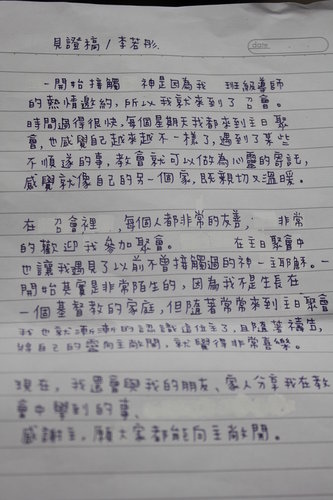 見證稿/李若彤
date
一開始接觸 神是因為我 班級導師
的熱情邀約,所以我就來到了召會。
時間過得很快,每個星期天我都來到主日聚
會,也感覺自己越來越不一樣了,遇到了某些
不順遂的事,教會就可以做為心靈的寄託,
感覺就像自己的另一個家,既親切又溫暖。
在 召會裡 ,每個人都非常的友善, 非常
的歡迎我參加聚會。 在主日聚會中
也讓我遇見了以前不曾接觸過的神-主耶穌。一
開始其實是非常陌生的,因為我不是生長在
一個基督教的家庭,但隨著常常來到主日聚會
我也就漸漸的認識這位主了,且隨著禱告,
將自己的靈向主敞開,就覺得非常喜樂。
現在,我還會與我的朋友、家人分享我在教
會中學到的事、
感謝主,願大家都能向主敞開。